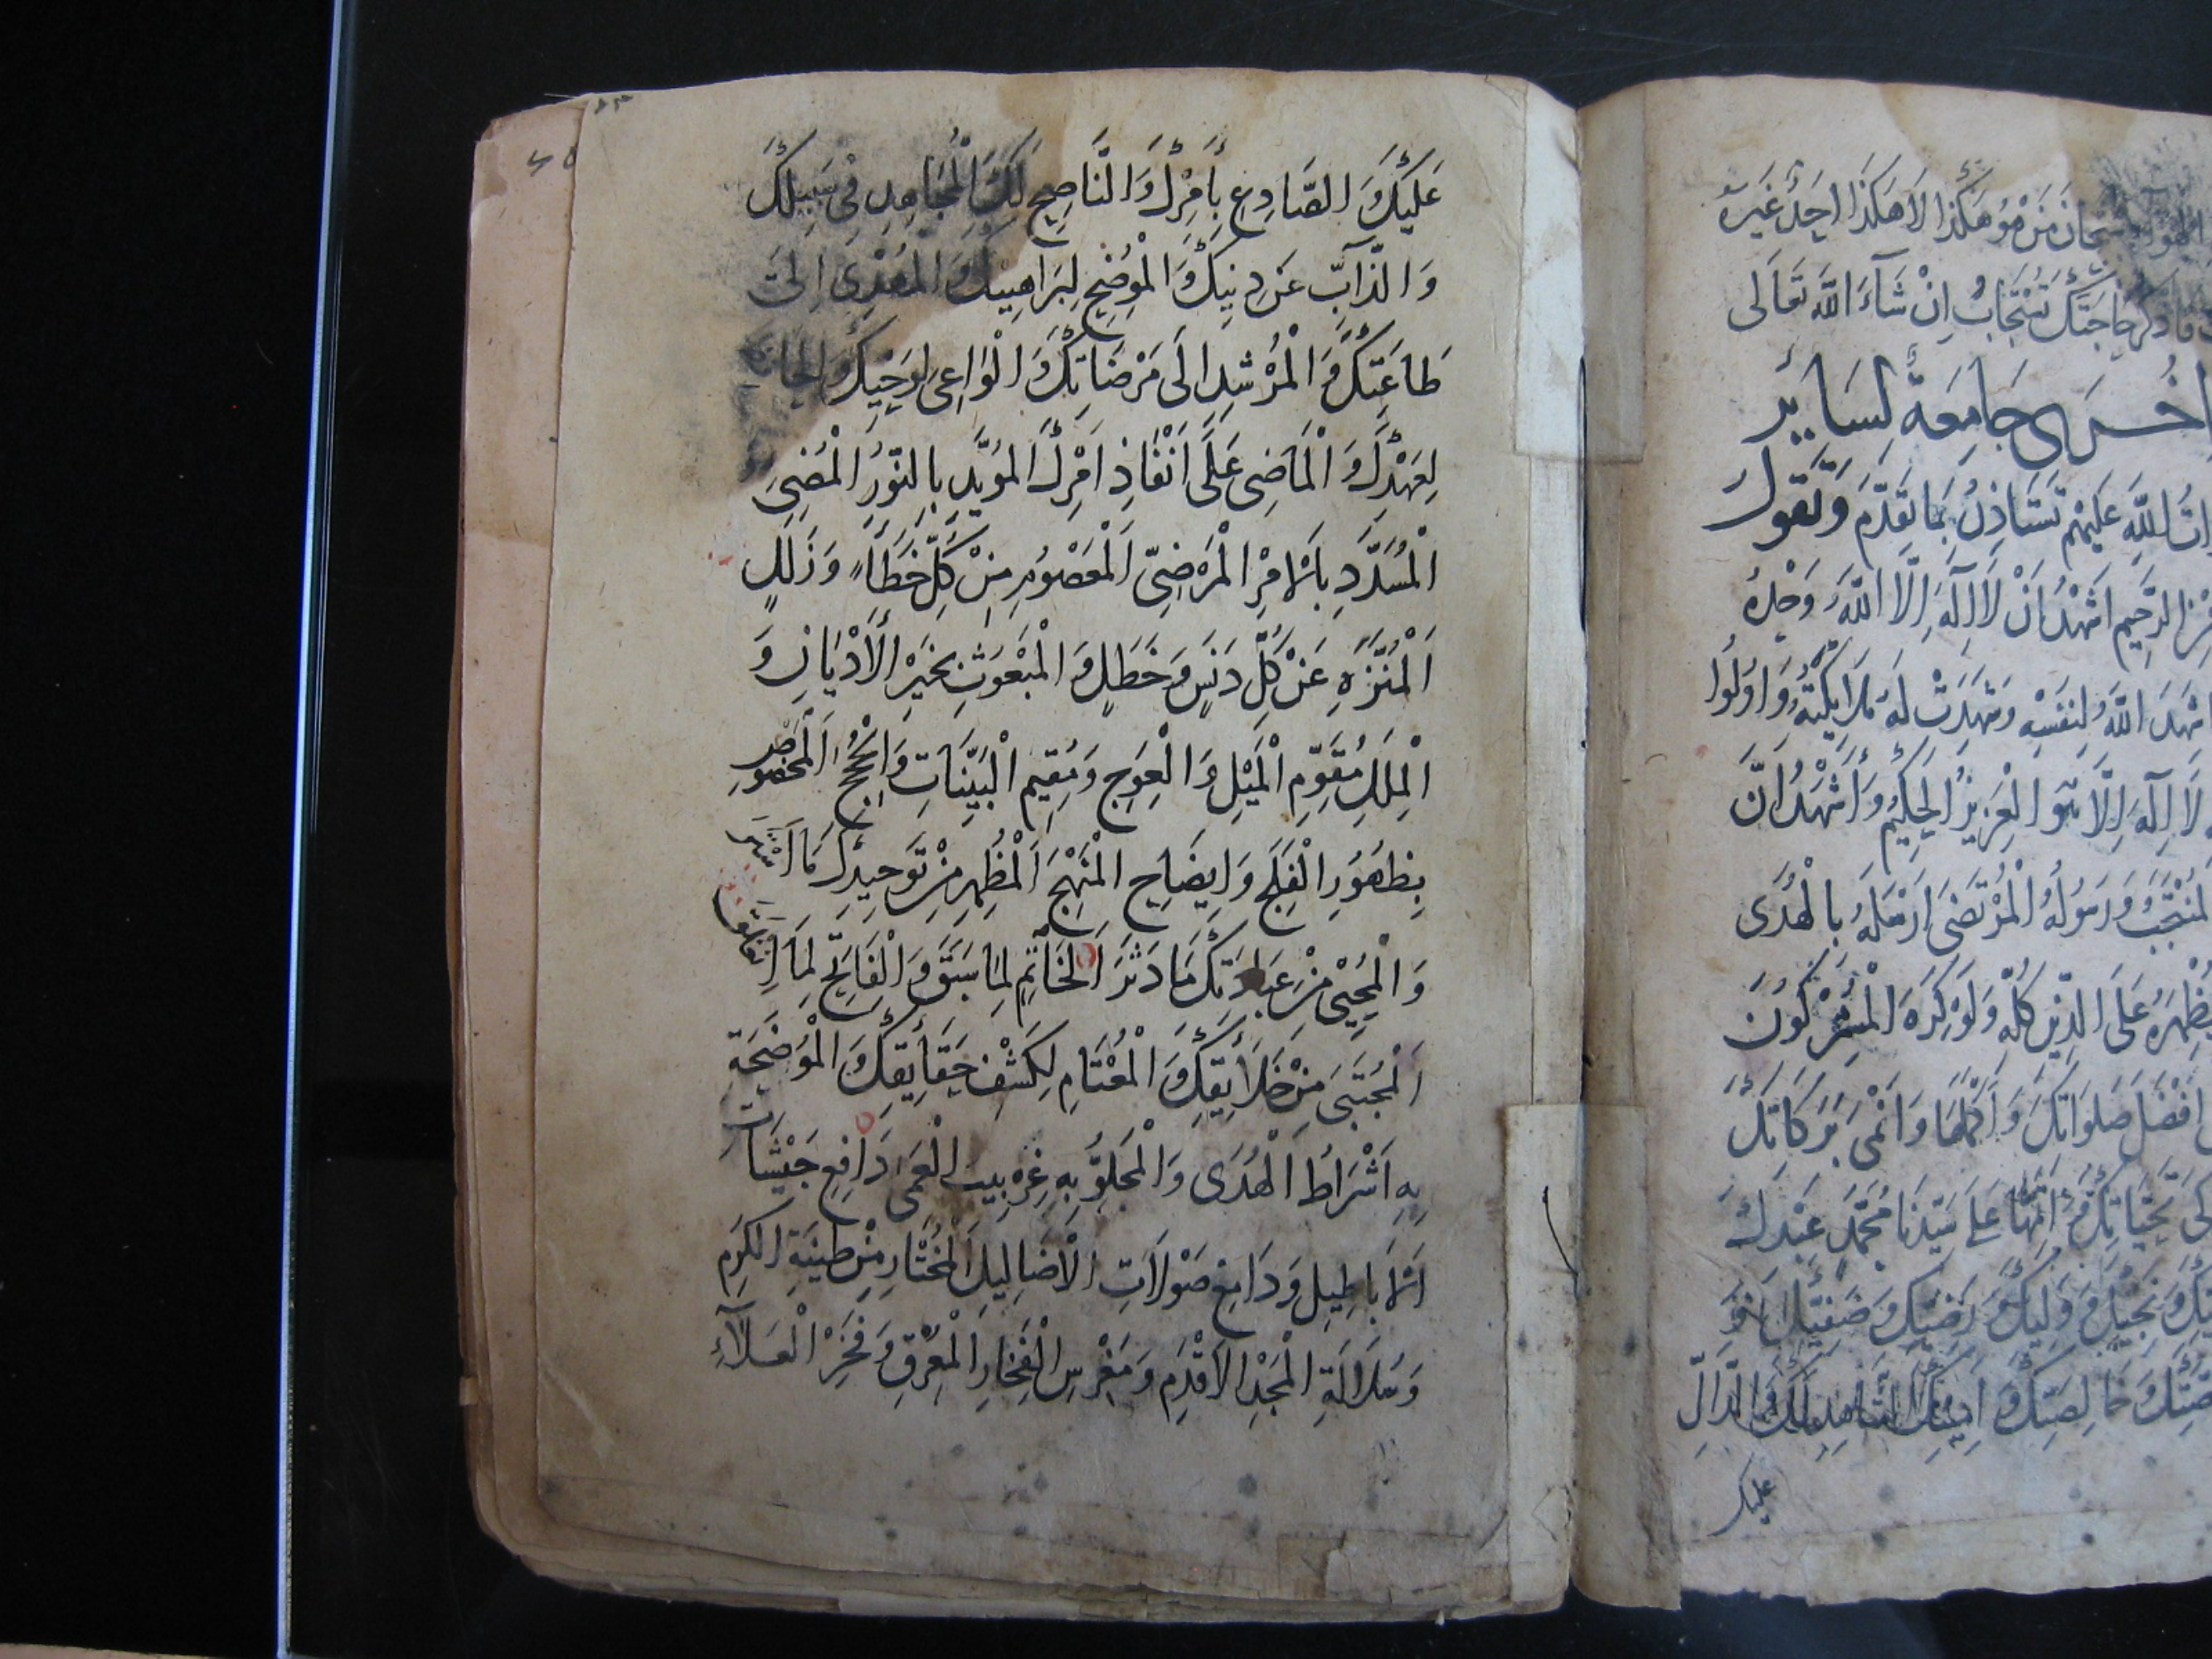 سبحان من هو هكذا لا هكذا احد غيره
فاذكر حاجتك تستجاب ان شآء الله تعالى
اخرى جامعة لساير
الله عليهم تستاذن بما تقدم وتقول
الرحيم اشهد ان لا اله الا الله وحده
شهد الله لنفسه وشهدت له ملايكته واولوا
لا اله الا هو العزيز الحكيم واشهد ان
المنتجب ورسوله المرتضى ارسله بالهدى
ليظهره على الدين كله ولو كره المشركون
افضل صلواتك واكملها وانمى بركاتك
تحياتك واتمها على سيدنا محمد عبدك
ونجيك ووليك ورضيك وصفيك
وخالصتك وامينك الشاهد لك والدال
عليك
عَلَيْكَ وَالصَّادِعِ بِأَمْرِكَ وَالنَّاصِحِ لَكَ الْمُجَاهِدِ فِي سَبِيلِكَ
وَالذَّآبِّ عَنْ دِينِكَ وَالْمُوضِحِ لِبَرَاهِينِكَ وَالْمَهْدِي اِلَى
طَاعَتِكَ وَالْمُرْشِدِ اِلَى مَرْضَاتِكَ وَالْوَاعِي لِوَحْيِكَ وَالْحَافِظِ
لِعَهْدِكَ وَالْمَاضِي عَلَى اَنْفَاذِ اَمْرِكَ الْمُؤَيَّدِ بِالنُّورِ الْمُضِيءِ
الْمُسَدَّدِ بِالْاَمْرِ الْمَرْضِيِّ الْمَعْصُومِ مِنْ كُلِّ خَطَاءٍ وَزَلَلٍ
اَلْمُنَزَّهِ عَنْ كُلِّ دَنَسٍ وَخَطَلٍ وَالْمَبْعُوثِ بِخَيْرِ الْاَدْيَانِ وَ
الْمِلَلِ مُقَوِّمِ الْمَيْلِ وَالْعِوَجِ وَمُقِيمِ الْبَيِّنَاتِ وَالْحُجَجِ الْمَخْصُوصِ
بِظُهُورِ الْفَلَجِ وَاِيضَاحِ الْمَنْهَجِ الْمُظْهِرِ مِنْ تَوْحِيدِكَ مَا اسْتَتَرَ
وَالْمُحْيِي مِنْ عِبَادَتِكَ مَا دَثَرَ الْخَاتِمِ لِمَا سَبَقَ وَالْفَاتِحِ لِمَا انْغَلَقَ
اَلْمُجْتَبَى مِنْ خَلَايِقِكَ وَالْمُعْتَامِ لِكَشْفِ حَقَايِقِكَ وَالْمُوضَحَةِ
بِهِ اَشْرَاطُ الْهُدَى وَالْمَجْلُوِّ بِهِ غِرْبِيبُ الْعَمَى دَافِعِ جَيْشَاتِ
الْاَبَاطِيلِ وَدَامِغِ صَوْلَاتِ الْاَضَالِيلِ الْمُخْتَارِ مِنْ طِينَةِ الْكَرَمِ
وَسُلَالَةِ الْمَجْدِ الْاَقْدَمِ وَمَغْرِسِ الْفَخَارِ الْمُعْرِقِ وَفَخْرِ الْعَلَآءِ